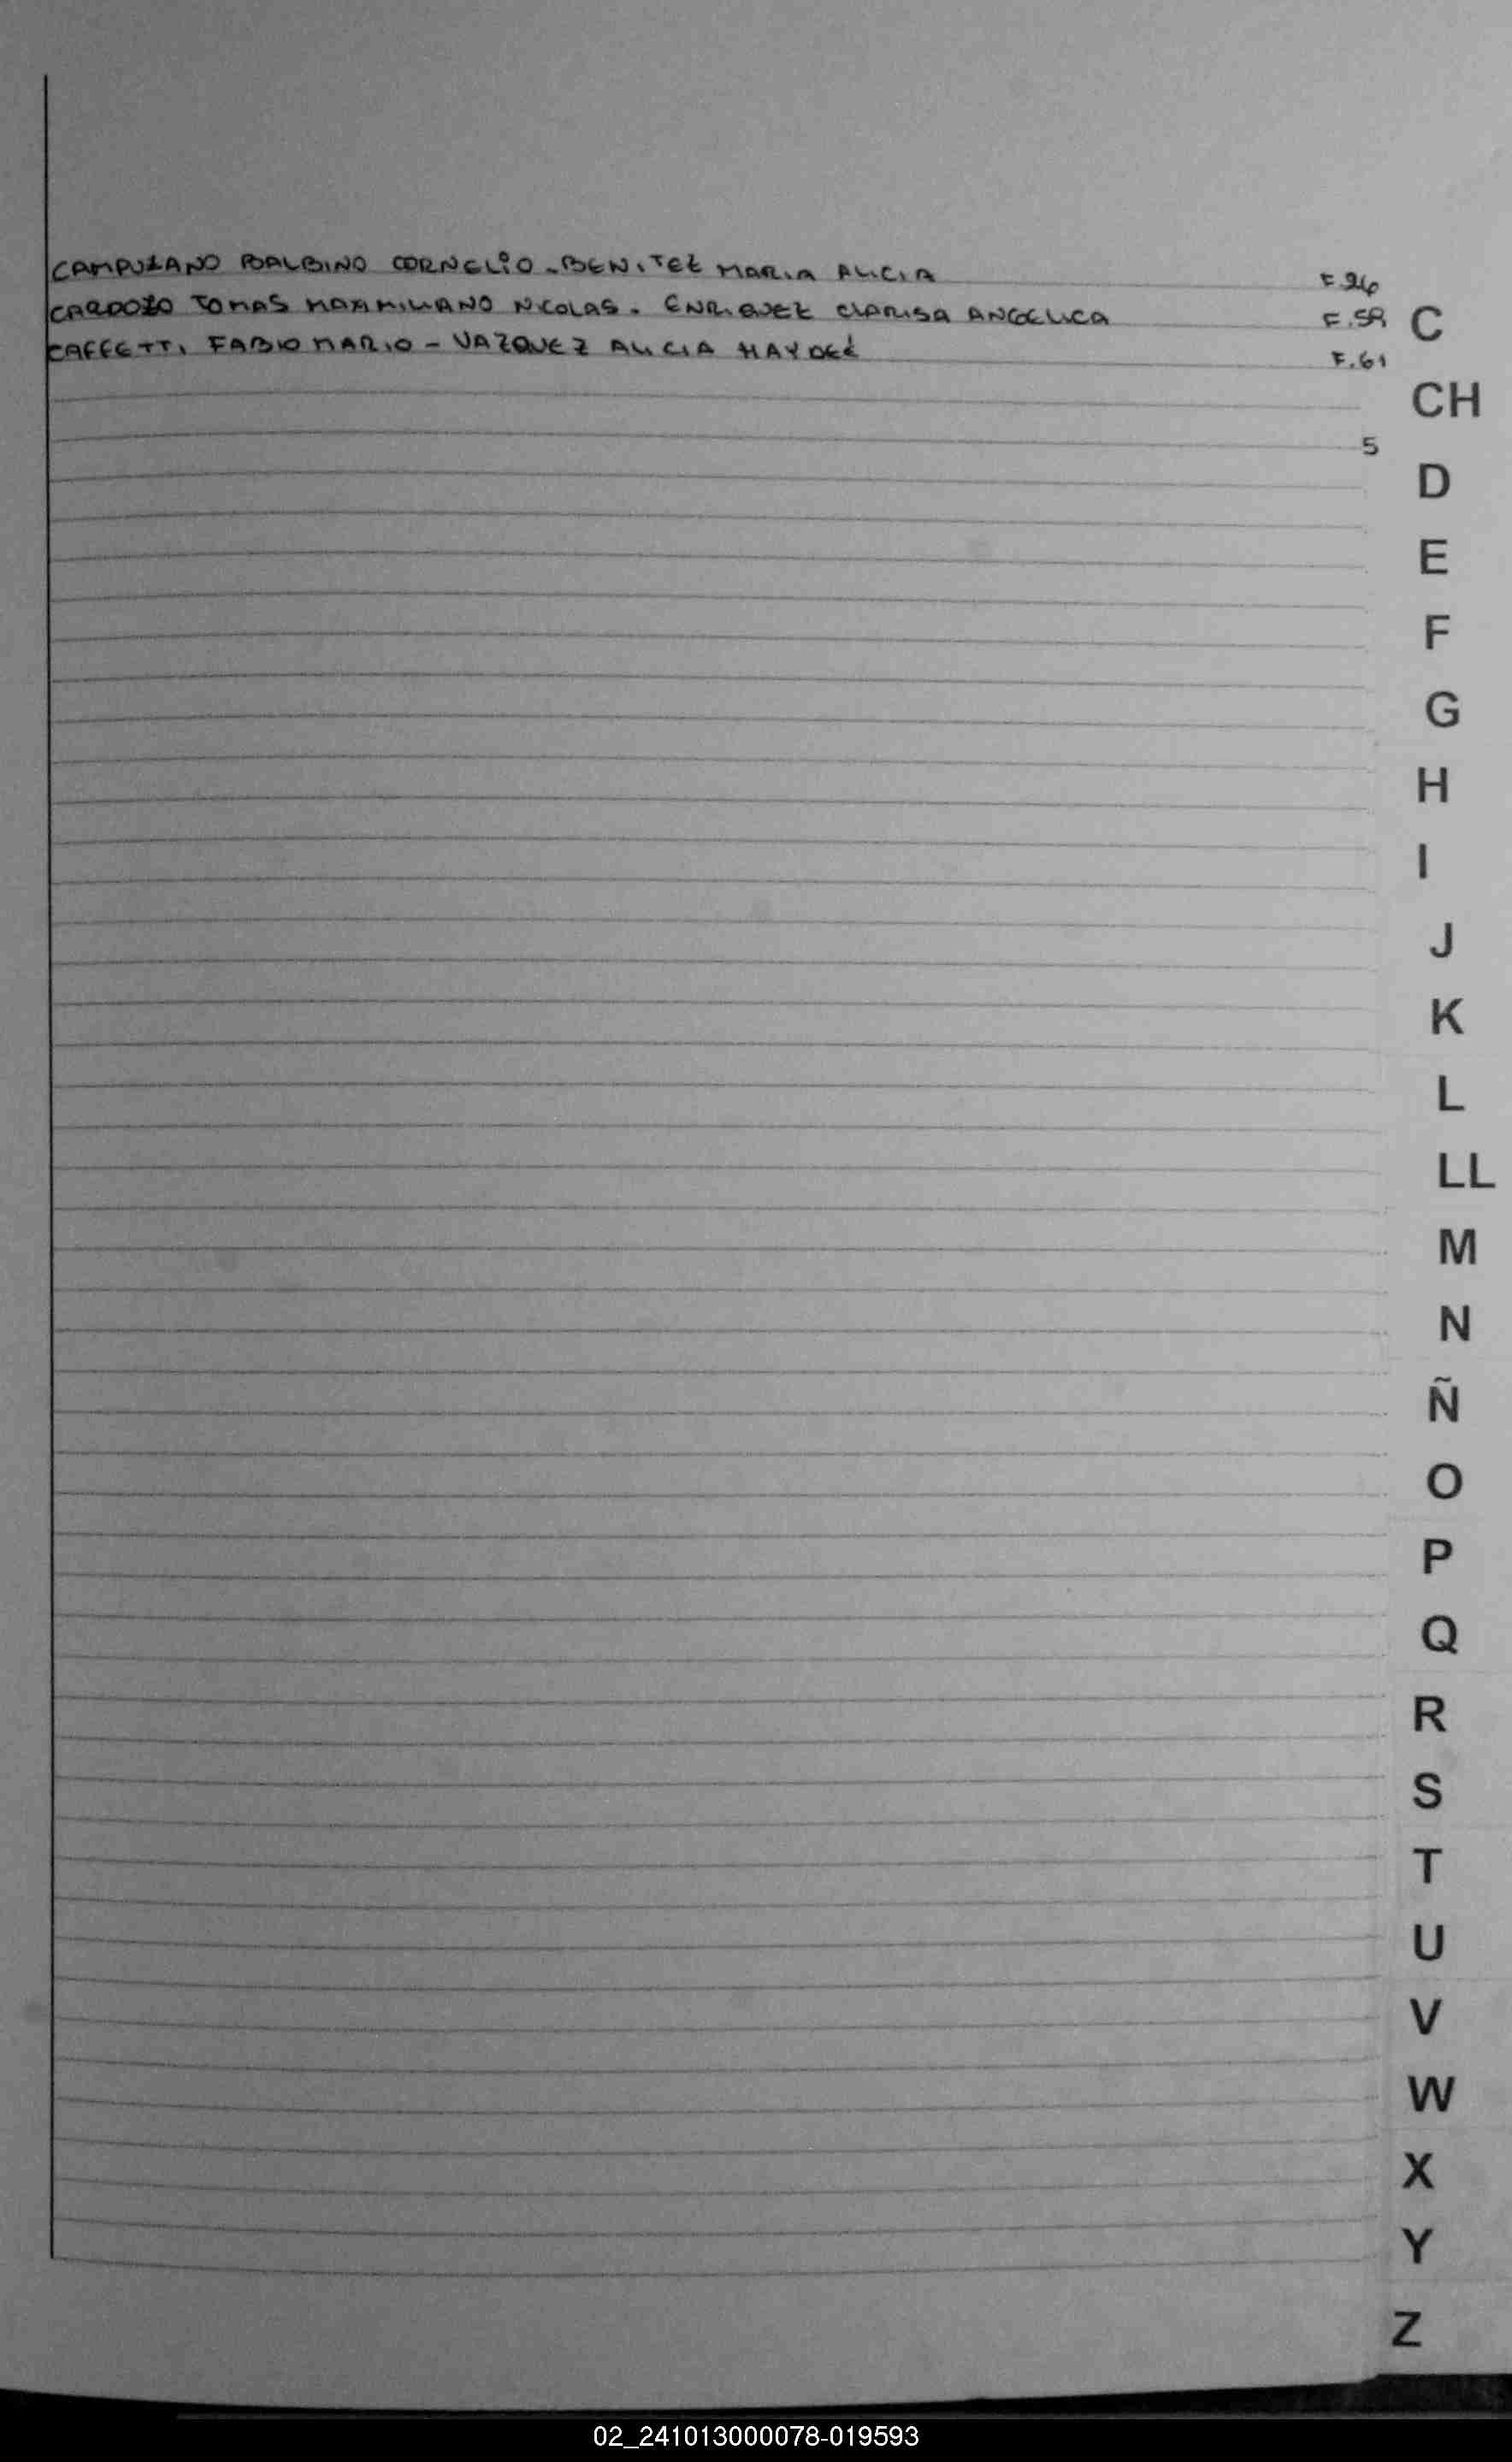 CAMPUZANO BALBINO CORNELIO - BENITEZ MARIA ALICIA F.26
CARDOZO TOMAS MAXIMILIANO NICOLAS - ENRIQUEZ CLARISA ANGELICA F.59
CAFFETTI FABIO MARIO - VAZQUEZ ALICIA HAYDEÉ F.61
C
CH
5
D
E
F
G
H
I
J
K
L
LL
M
N
Ñ
O
P
Q
R
S
T
U
V
W
X
Y
Z
02_241013000078-019593